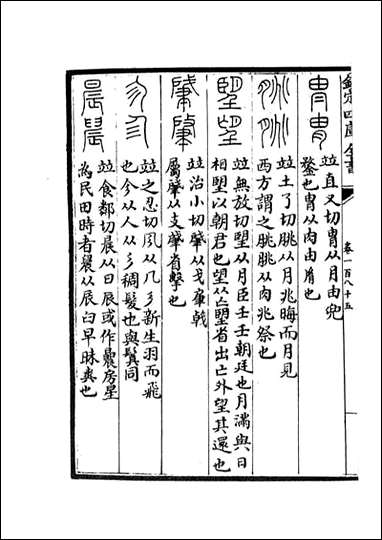 欽定四庫全書
卷一百八十五
胄胄
竝直又切胄从冃由兜
鍪也胄从肉由𦙍也
朓朓
竝土了切朓从月兆晦而月見
西方謂之朓朓从肉兆祭也
朢望
竝無放切朢从月臣壬壬朝廷也月滿與日
相朢以朝君也望从亡朢省出亡外望其還也
肈肇
竝治小切肈从戈肁戟
屬肇从攴肈省擊也
竝之忍切从几彡新生羽而飛
也㐱从人从彡稠髮也與鬒同
晨晨
竝食鄰切晨从日辰或作曟房星
為民田時者晨从辰臼早昧爽也